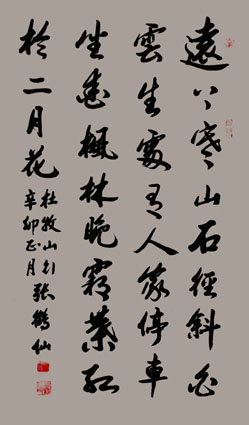 遠上寒山石徑斜白
雲生處有人家停車
坐愛楓林晚霜葉紅
於二月花
杜牧山行
辛卯正月
張鶴仙